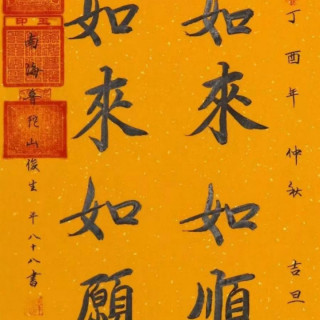 丁酉年 仲秋 吉旦
如來如順
如來如願
南海普陀山俊生 年八十八書